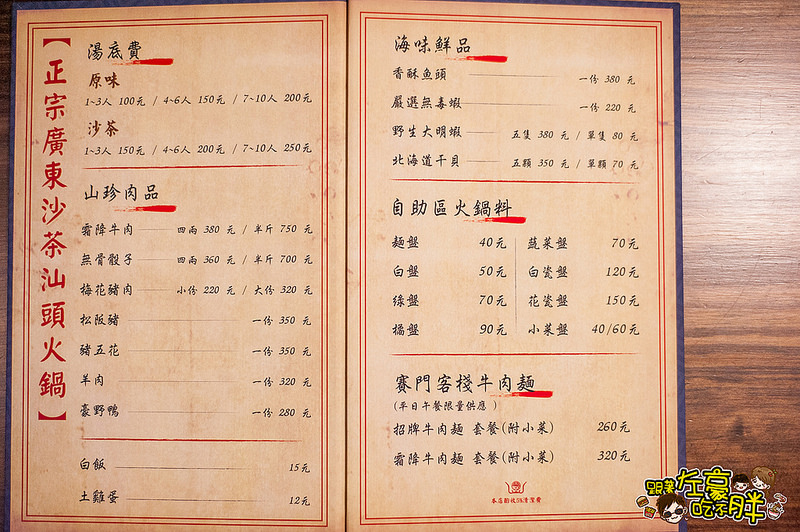 【正宗廣東沙茶汕頭火鍋】
湯底費
原味
1~3人 100元 / 4~6人 150元 / 7~10人 200元
沙茶
1~3人 150元 / 4~6人 200元 / 7~10人 250元
山珍肉品
霜降牛肉 四兩 380 元 / 半斤 750 元
無骨骰子 四兩 360 元 / 半斤 700 元
梅花豬肉 小份 220 元 / 大份 320 元
松阪豬 一份 350 元
豬五花 一份 350 元
羊肉 一份 320 元
豪野鴨 一份 280 元
白飯 15元
土雞蛋 12元
海味鮮品
香酥魚頭 一份 380 元
嚴選無毒蝦 一份 220 元
野生大明蝦 五隻 380 元 / 單隻 80 元
北海道干貝 五顆 350 元 / 單顆 70 元
自助區火鍋料
麵盤 40元 蔬菜盤 70元
白盤 50元 白瓷盤 120元
綠盤 70元 花瓷盤 150元
橘盤 90元 小菜盤 40/60元
賽門客棧牛肉麵
(平日午餐限量供應 )
招牌牛肉麵 套餐(附小菜) 260元
霜降牛肉麵 套餐(附小菜) 320元
本店酌收5%清潔費
跟著左豪吃不胖